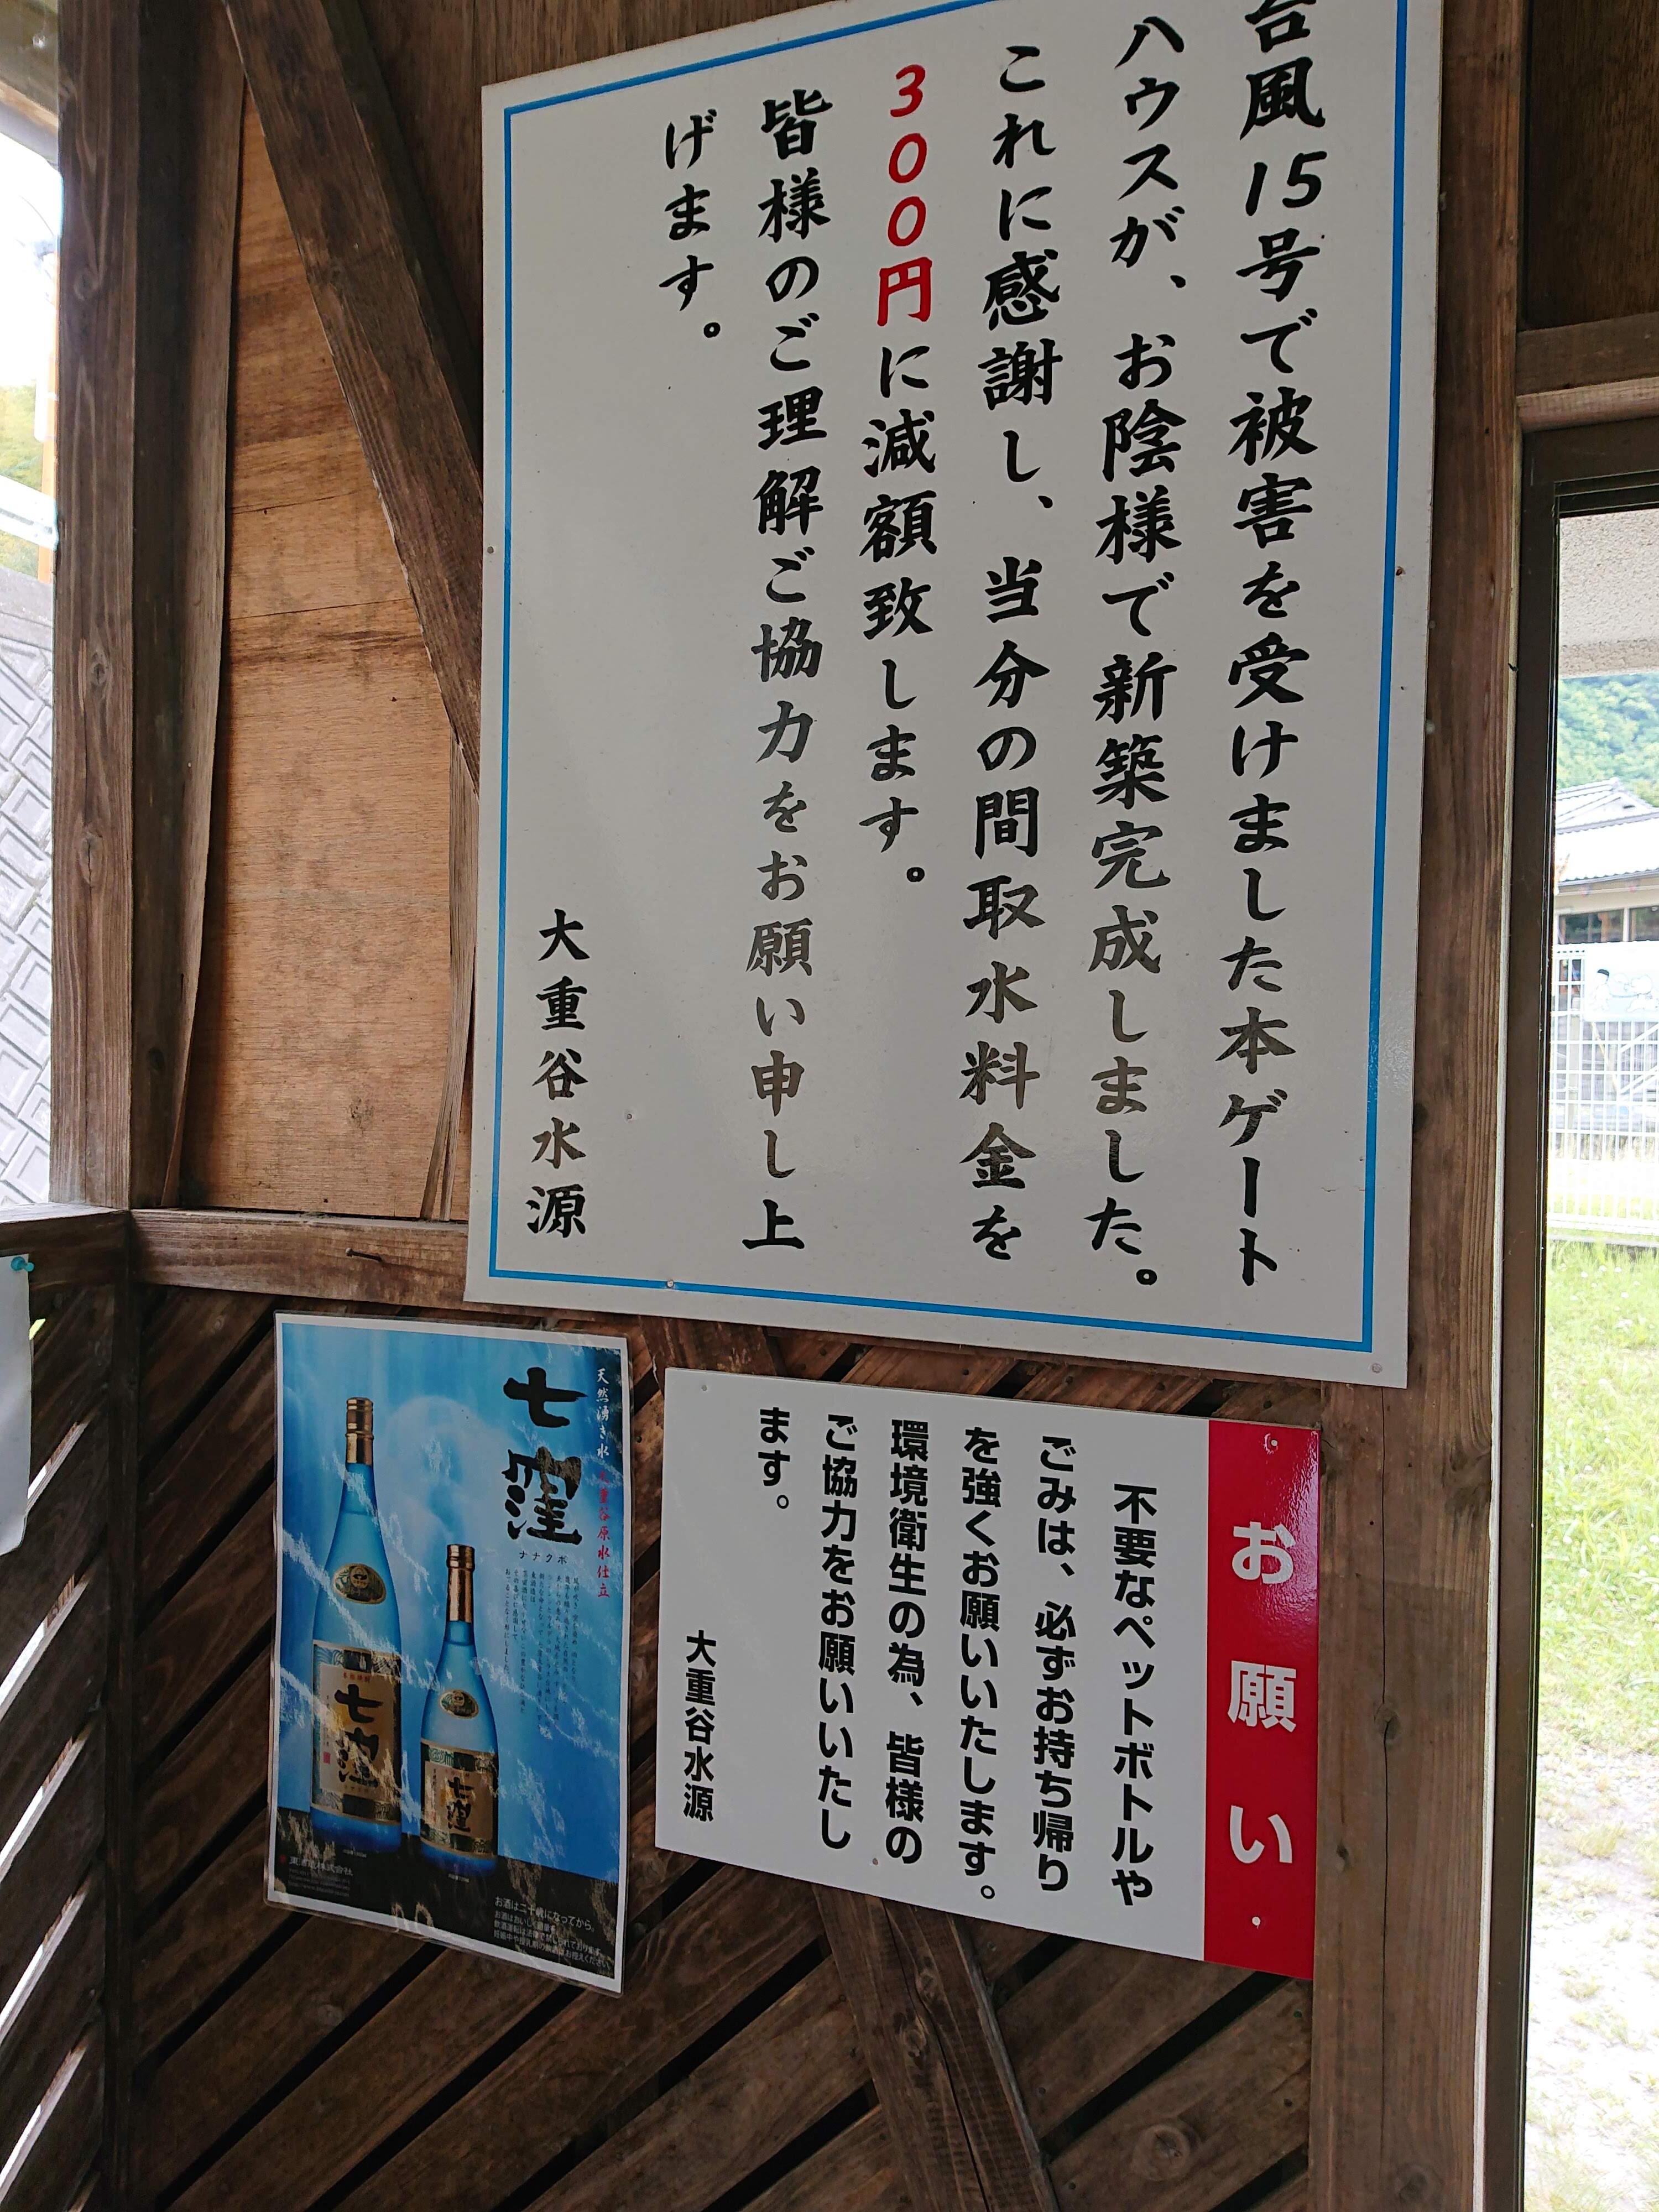 台風15号で被害を受けました本ゲート
ハウスが、お陰様で新築完成しました。
これに感謝し、当分の間取水料金を
300円に減額致します。
皆様のご理解ご協力をお願い申し上
げます。
大重谷水源
お願い
不要なペットボトルや
ごみは、必ずお持ち帰り
を強くお願いいたします。
環境衛生の為、皆様の
ご協力をお願いいたし
ます。
大重谷水源
天然湧き水 大重谷原水仕立
七窪
ナナクボ
七窪
七窪
お酒は二十歳になってから。